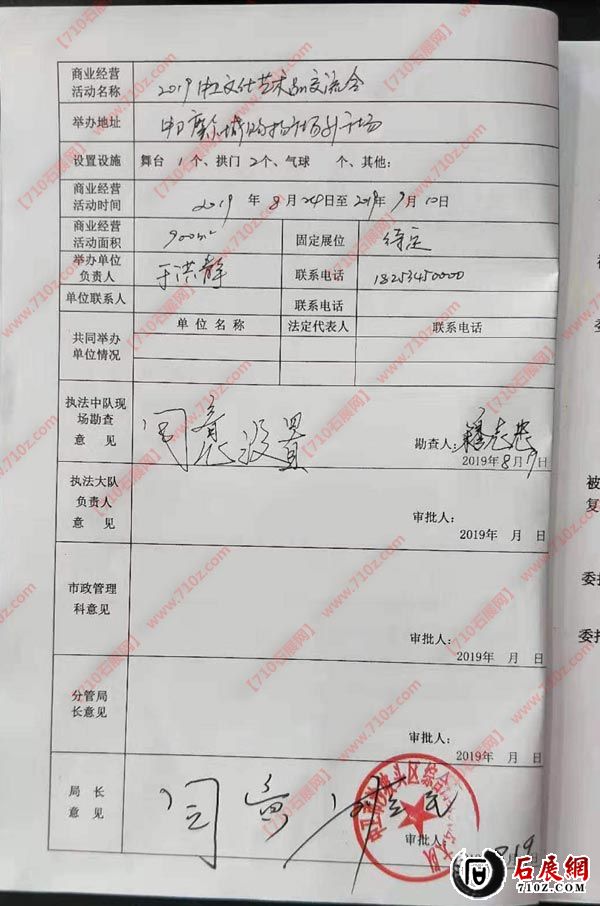 商业经营
活动名称
2019中卫文化艺术品交流会
举办地址
设置设施
舞台 1个、拱门 2个、气球 个、其他：
商业经营
活动时间
2019 年 8 月 24日至 2019年 9月 10日
商业经营
活动面积
900m²
固定展位
待定
举办单位
负责人
于洪静
联系电话
18253450000
单位联系人
联系电话
共同举办
单位情况
单 位 名 称
法定代表人
联系电话
执法中队现
场勘查
意 见
同意设置
勘查人：
2019年8月 日
执法大队
负责人
意 见
审批人：
2019年 月 日
市政管理
科意见
审批人：
2019年 月 日
分管局
长意见
审批人：
2019年 月 日
局 长
意 见
同意
审批人：
8月19
头区综合
大队
被
复
委托
委托
【710石展网】
www.710z.com
石展網
710Z.COM